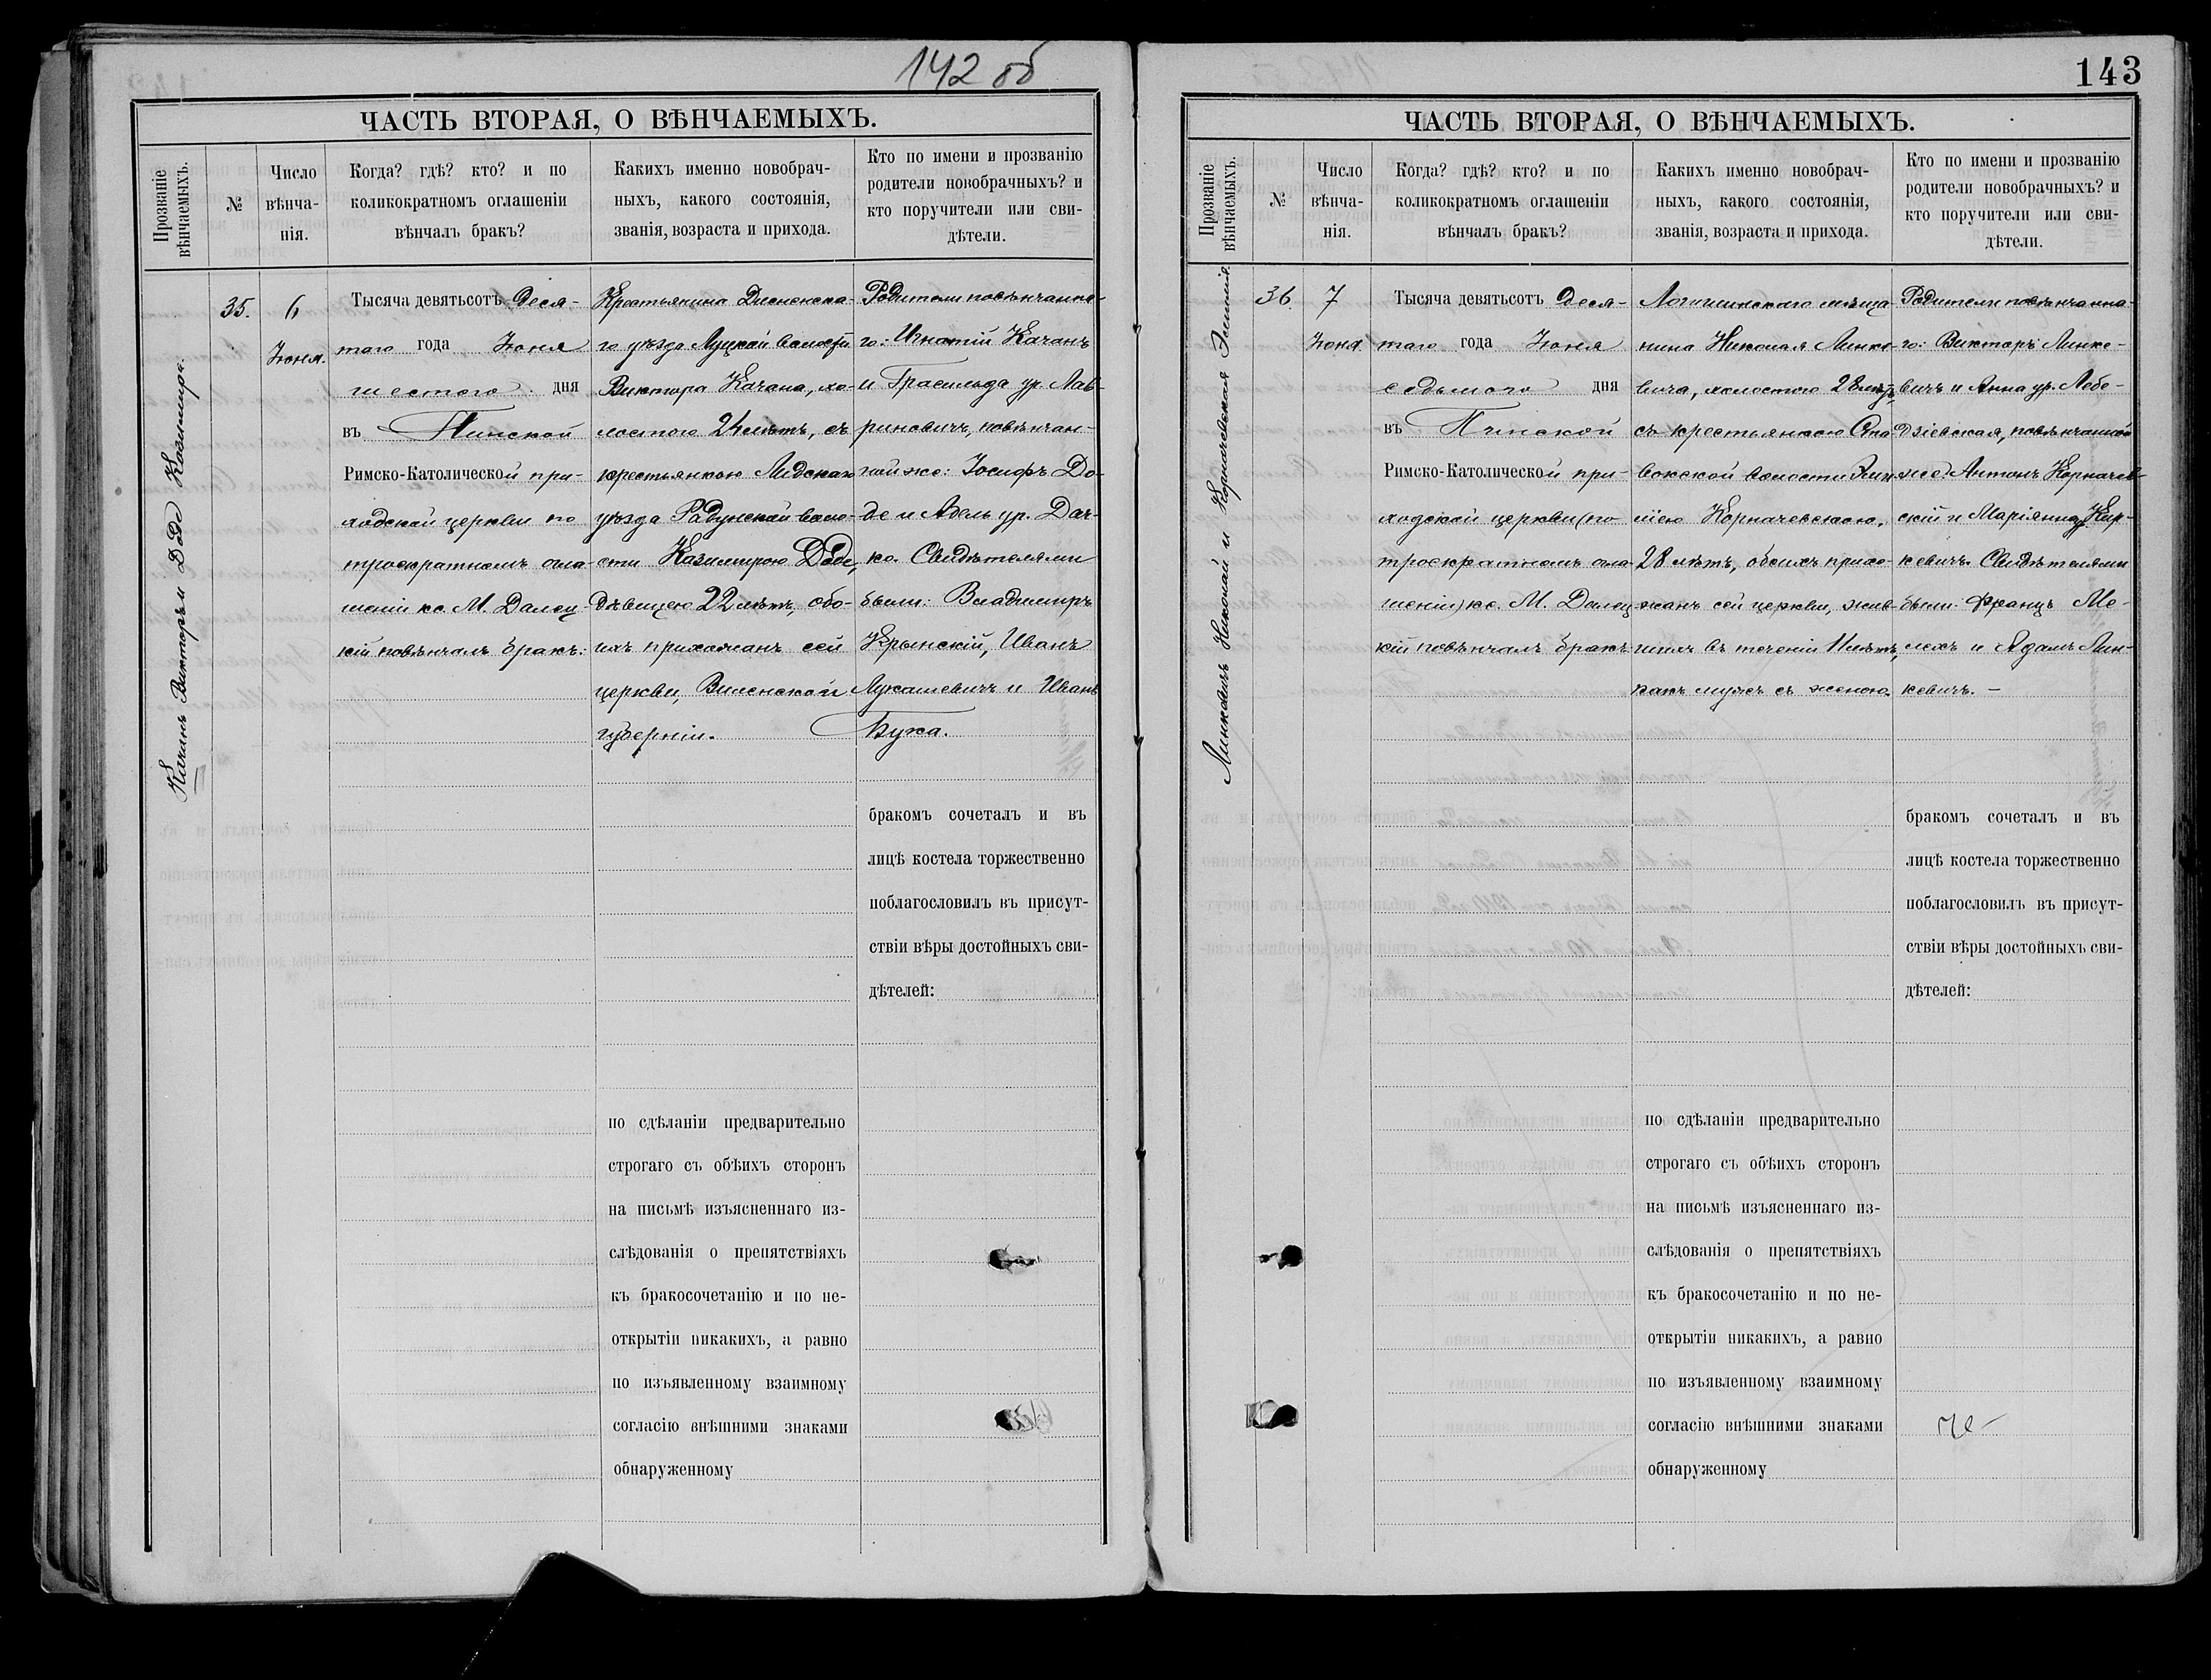 142 об
ЧАСТЬ ВТОРАЯ, О ВѢНЧАЕМЫХЪ.
Прозваніе вѣнчаемыхъ.
№
Число вѣнча-
нія.
Когда? гдѣ? кто? и по
коликократномъ оглашеніи
вѣнчалъ бракъ?
Какихъ именно новобрач-
ныхъ, какого состоянія,
званія, возраста и прихода.
Кто по имени и прозванію
родители новобрачныхъ? и
кто поручители или сви-
дѣтели.
Качанъ Викторъ и Доде Казимира.
35.
6
Іюня.
Тысяча девятьсотъ деся-
таго года Іюня
шестого дня
въ Пинской
Римско-Католической при-
ходской церкви по
троекратномъ огла-
шеніи кс. М. Далец-
кій повѣнчалъ бракъ:
Крестьянина Дисненска-
го уѣзда Луцкой волости
Виктора Качана, хо-
лостого 24 лѣтъ, съ
крестьянкою Лидскаго
уѣзда Радунской воло-
сти Казимирою Доде,
дѣвицею 22 лѣтъ, обо-
ихъ прихожанъ сей
церкви, Виленской
губерніи.
Родители повѣнчанна-
го: Игнатій Качанъ
и Грасильда ур. Лав-
риновичъ, повѣнчан-
ной же: Іосифъ До-
де и Адель ур. Дач-
ко. Свидѣтелями
были: Владимиръ
Крынскій, Иванъ
Лукашевичъ и Иванъ
Бужа.
бракомъ сочеталъ и въ
лицѣ костела торжественно
поблагословилъ въ присут-
ствіи вѣры достойныхъ сви-
дѣтелей:
по сдѣланіи предварительно
строгаго съ обѣихъ сторонъ
на письмѣ изъясненнаго из-
слѣдованія о препятствіяхъ
къ бракосочетанію и по не-
открытіи никакихъ, а равно
по изъявленному взаимному
согласію внѣшними знаками
обнаруженному
143
ЧАСТЬ ВТОРАЯ, О ВѢНЧАЕМЫХЪ.
Прозваніе вѣнчаемыхъ.
№
Число вѣнча-
нія.
Когда? гдѣ? кто? и по
коликократномъ оглашеніи
вѣнчалъ бракъ?
Какихъ именно новобрач-
ныхъ, какого состоянія,
званія, возраста и прихода.
Кто по имени и прозванію
родители новобрачныхъ? и
кто поручители или сви-
дѣтели.
Линкевичъ Николай и Корначевская
36.
7
Іюня
Тысяча девятьсотъ деся-
таго года Іюня
седьмого дня
въ Пинской
Римско-Католической при-
ходской церкви (по
троекратномъ огла-
шеніи) кс. М. Далец-
кій повѣнчалъ бракъ
Логишинскаго мѣща-
нина Николая Линке-
вича, холостого 28 лѣтъ,
съ крестьянкою
волости
Корначевскою,
28 лѣтъ, обоихъ прихо-
жанъ сей церкви, жив-
шихъ въ теченіи 11 лѣтъ,
какъ мужъ съ женою.
Родители повѣнчанна-
го: Викторъ Линке-
вичъ и Анна ур. Лебе-
дзіевская, повѣнчанной
же: Антонъ Корначев-
скій и Маріянна
кевичъ. Свидѣтелями
были: Францъ Ме-
лехъ и Адамъ Лин-
кевичъ. –
бракомъ сочеталъ и въ
лицѣ костела торжественно
поблагословилъ въ присут-
ствіи вѣры достойныхъ сви-
дѣтелей:
по сдѣланіи предварительно
строгаго съ обѣихъ сторонъ
на письмѣ изъясненнаго из-
слѣдованія о препятствіяхъ
къ бракосочетанію и по не-
открытіи никакихъ, а равно
по изъявленному взаимному
согласію внѣшними знаками
обнаруженному